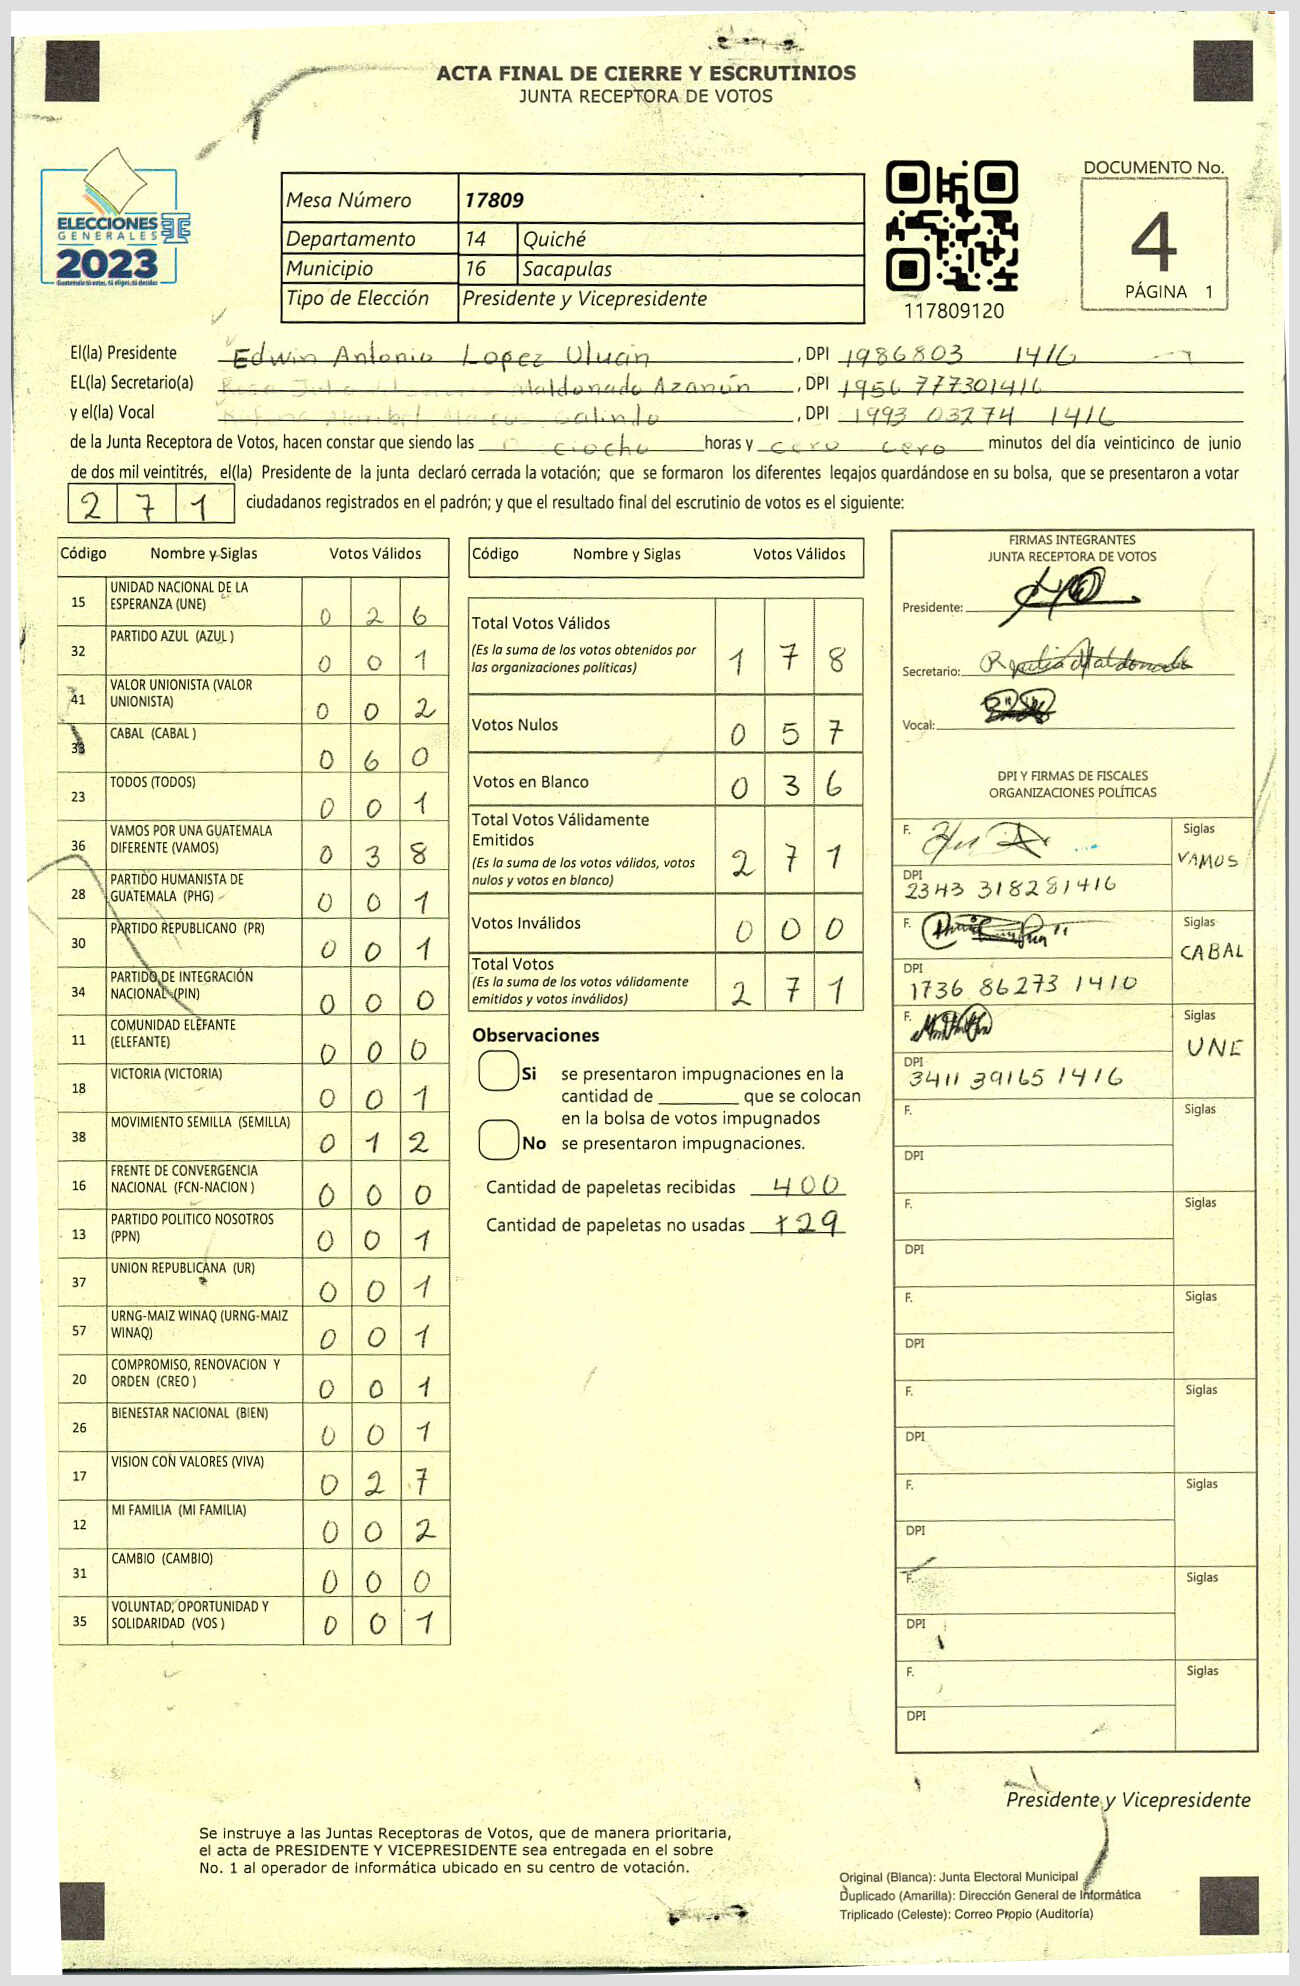 ACTA FINAL DE CIERRE Y ESCRUTINIOS
JUNTA RECEPTORA DE VOTOS
ELECCIONES
GENERALES
2023
Guatemala tú votas, tú eliges, tú decides
Mesa Número 17809
Departamento 14 Quiché
Municipio 16 Sacapulas
Tipo de Elección Presidente y Vicepresidente
117809120
DOCUMENTO No.
4
PÁGINA 1
El(la) Presidente Edwin Antonio Lopez Ulucin , DPI 1986803 1416
EL(la) Secretario(a) Maldonado Azanón , DPI 1956 777301416
y el(la) Vocal Galindo , DPI 1993 03274 1416
de la Junta Receptora de Votos, hacen constar que siendo las ciocho horas y cero cero minutos del día veinticinco de junio
de dos mil veintitrés, el(la) Presidente de la junta declaró cerrada la votación; que se formaron los diferentes legajos guardándose en su bolsa, que se presentaron a votar
2 7 1 ciudadanos registrados en el padrón; y que el resultado final del escrutinio de votos es el siguiente:
Código Nombre y Siglas Votos Válidos
15 UNIDAD NACIONAL DE LA
ESPERANZA (UNE) 0 2 6
32 PARTIDO AZUL (AZUL ) 0 0 1
41 VALOR UNIONISTA (VALOR
UNIONISTA) 0 0 2
33 CABAL (CABAL ) 0 6 0
23 TODOS (TODOS) 0 0 1
36 VAMOS POR UNA GUATEMALA
DIFERENTE (VAMOS) 0 3 8
28 PARTIDO HUMANISTA DE
GUATEMALA (PHG) 0 0 1
30 PARTIDO REPUBLICANO (PR) 0 0 1
34 PARTIDO DE INTEGRACIÓN
NACIONAL (PIN) 0 0 0
11 COMUNIDAD ELEFANTE
(ELEFANTE) 0 0 0
18 VICTORIA (VICTORIA) 0 0 1
38 MOVIMIENTO SEMILLA (SEMILLA) 0 1 2
16 FRENTE DE CONVERGENCIA
NACIONAL (FCN-NACION ) 0 0 0
13 PARTIDO POLITICO NOSOTROS
(PPN) 0 0 1
37 UNION REPUBLICANA (UR) 0 0 1
57 URNG-MAIZ WINAQ (URNG-MAIZ
WINAQ) 0 0 1
20 COMPROMISO, RENOVACION Y
ORDEN (CREO ) 0 0 1
26 BIENESTAR NACIONAL (BIEN) 0 0 1
17 VISION CON VALORES (VIVA) 0 2 7
12 MI FAMILIA (MI FAMILIA) 0 0 2
31 CAMBIO (CAMBIO) 0 0 0
35 VOLUNTAD, OPORTUNIDAD Y
SOLIDARIDAD (VOS ) 0 0 1
Código Nombre y Siglas Votos Válidos
Total Votos Válidos
(Es la suma de los votos obtenidos por
las organizaciones políticas) 1 7 8
Votos Nulos 0 5 7
Votos en Blanco 0 3 6
Total Votos Válidamente
Emitidos
(Es la suma de los votos válidos, votos
nulos y votos en blanco) 2 7 1
Votos Inválidos 0 0 0
Total Votos
(Es la suma de los votos válidamente
emitidos y votos inválidos) 2 7 1
Observaciones
Si se presentaron impugnaciones en la
cantidad de ________ que se colocan
en la bolsa de votos impugnados
No se presentaron impugnaciones.
Cantidad de papeletas recibidas 400
Cantidad de papeletas no usadas 129
FIRMAS INTEGRANTES
JUNTA RECEPTORA DE VOTOS
Presidente:
Secretario: Maldonado
Vocal:
DPI Y FIRMAS DE FISCALES
ORGANIZACIONES POLÍTICAS
F. Siglas
VAMOS
DPI
2343 318281416
F. Siglas
CABAL
DPI
1736 86273 1410
F. Siglas
UNE
DPI
3411 39165 1416
F. Siglas
DPI
F. Siglas
DPI
F. Siglas
DPI
F. Siglas
DPI
F. Siglas
DPI
F. Siglas
DPI
F. Siglas
DPI
Presidente y Vicepresidente
Se instruye a las Juntas Receptoras de Votos, que de manera prioritaria,
el acta de PRESIDENTE Y VICEPRESIDENTE sea entregada en el sobre
No. 1 al operador de informática ubicado en su centro de votación.
Original (Blanca): Junta Electoral Municipal
Duplicado (Amarilla): Dirección General de Informática
Triplicado (Celeste): Correo Propio (Auditoría)